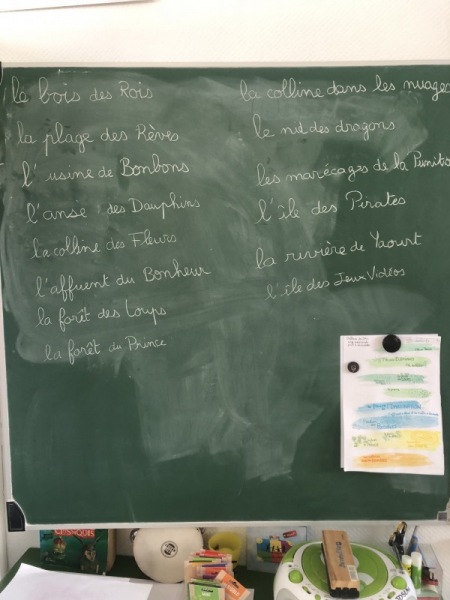 le bois des Rois
la plage des Rêves
l'usine de Bonbons
l'anse des Dauphins
la colline des Fleurs
l'affluent du Bonheur
la forêt des Loups
la forêt du Prince
la colline dans les nuages
le nid des dragons
les marécages de la
l'île des Pirates
la rivière de Yaourt
l'île des Jeux Vidéos
CLASSIQUES